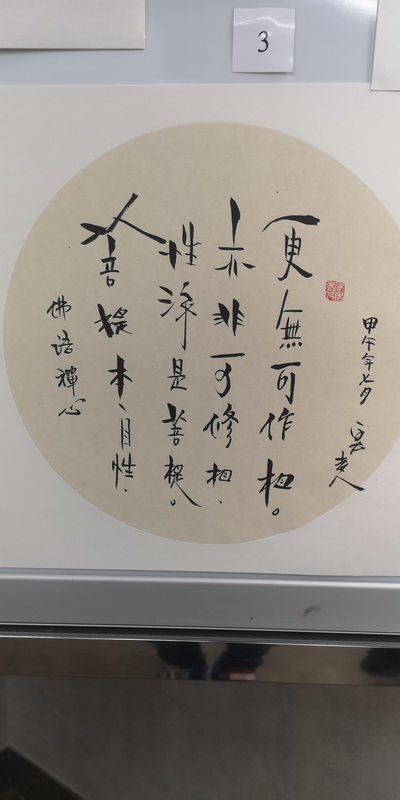 佛語禪心
菩提本自性、
性淨是菩提。
亦非可修相、
更無可作相。
甲午年七夕
老人
3